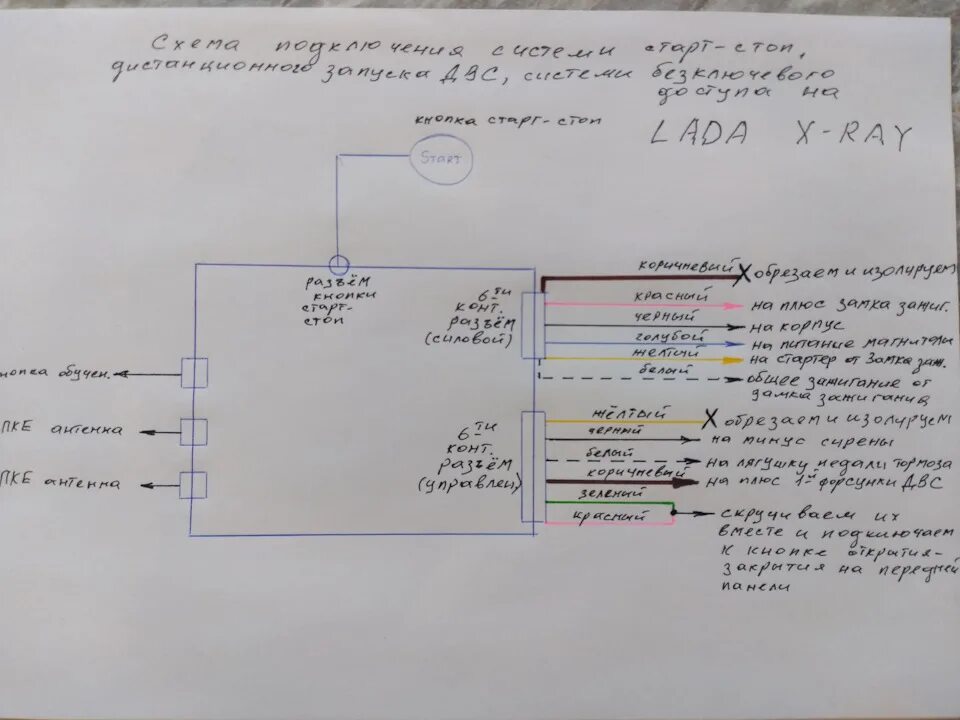 Схема подключения системы старт-стоп,
дистанционного запуска ДВС, системы безключевого
доступа на
LADA X-RAY
кнопка старт-стоп
Start
разъём
кнопки
старт-
стоп
6-ти
конт.
разъём
(силовой)
коричневый X обрезаем и изолируем
красный на плюс замка зажиг.
черный на корпус
голубой на питание магнитолы
жёлтый на стартер от замка заж.
белый общее зажигание от
замка зажигания
кнопка обучен.
ПКЕ антенна
ПКЕ антенна
6-ти
конт.
разъём
(управлен)
жёлтый X обрезаем и изолируем
черный на минус сирены
белый на лягушку педали тормоза
коричневый на плюс 1й форсунки ДВС
зеленый
красный скручиваем их
вместе и подключаем
к кнопке открытия-
закрытия на передней
панели